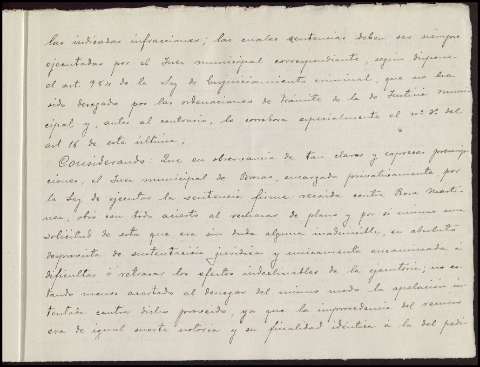 las indicadas infracciones; las cuales sentencias deben ser siempre
ejecutadas por el Juez municipal correspondiente, según dispone
el art. 984 de la Ley de Enjuiciamiento criminal, que no ha
sido derogado por las ordenaciones de trámite de la de Justicia muni-
cipal y, antes al contrario, lo corrobora especialmente el nº 3º del
art 16 de esta última.
Considerando: Que en observancia de tan claras y expresas prescrip-
ciones, el Juez municipal de encargado privativamente por
la Ley de ejecutar la sentencia firme recaída contra Rosa Martí-
nez, obró con todo acierto al rechazar de plano y por si mismo una
solicitud de esta que era sin duda alguna inadmisible, en absoluto
desprovista de sustentación jurídica y unicamente encaminada á
dificultar ó retrasar los efectos indeclinables de la ejecutoria; no es-
tando menos acertado al denegar del mismo modo la apelación in-
tentada contra dicho proveido, ya que la improcedencia del recurso
era de igual suerte notoria y su finalidad idéntica á la del pedi-